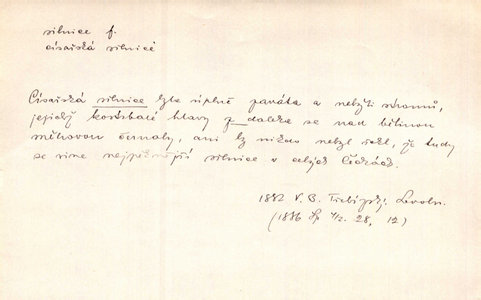 silnice f.
císařská silnice
Císařská silnice byla úplně zaváta a nebýti stromů,
jejichž košaté hlavy z daleka se nad bělinou
sněhovou černaly, ani by nikdo nebyl řekl, že tudy
se vine nejpěknější silnice v celých Čechách.
1882 V. B. Třebízský: Levohr.
(1886 Sp 4/2. 28, 12)